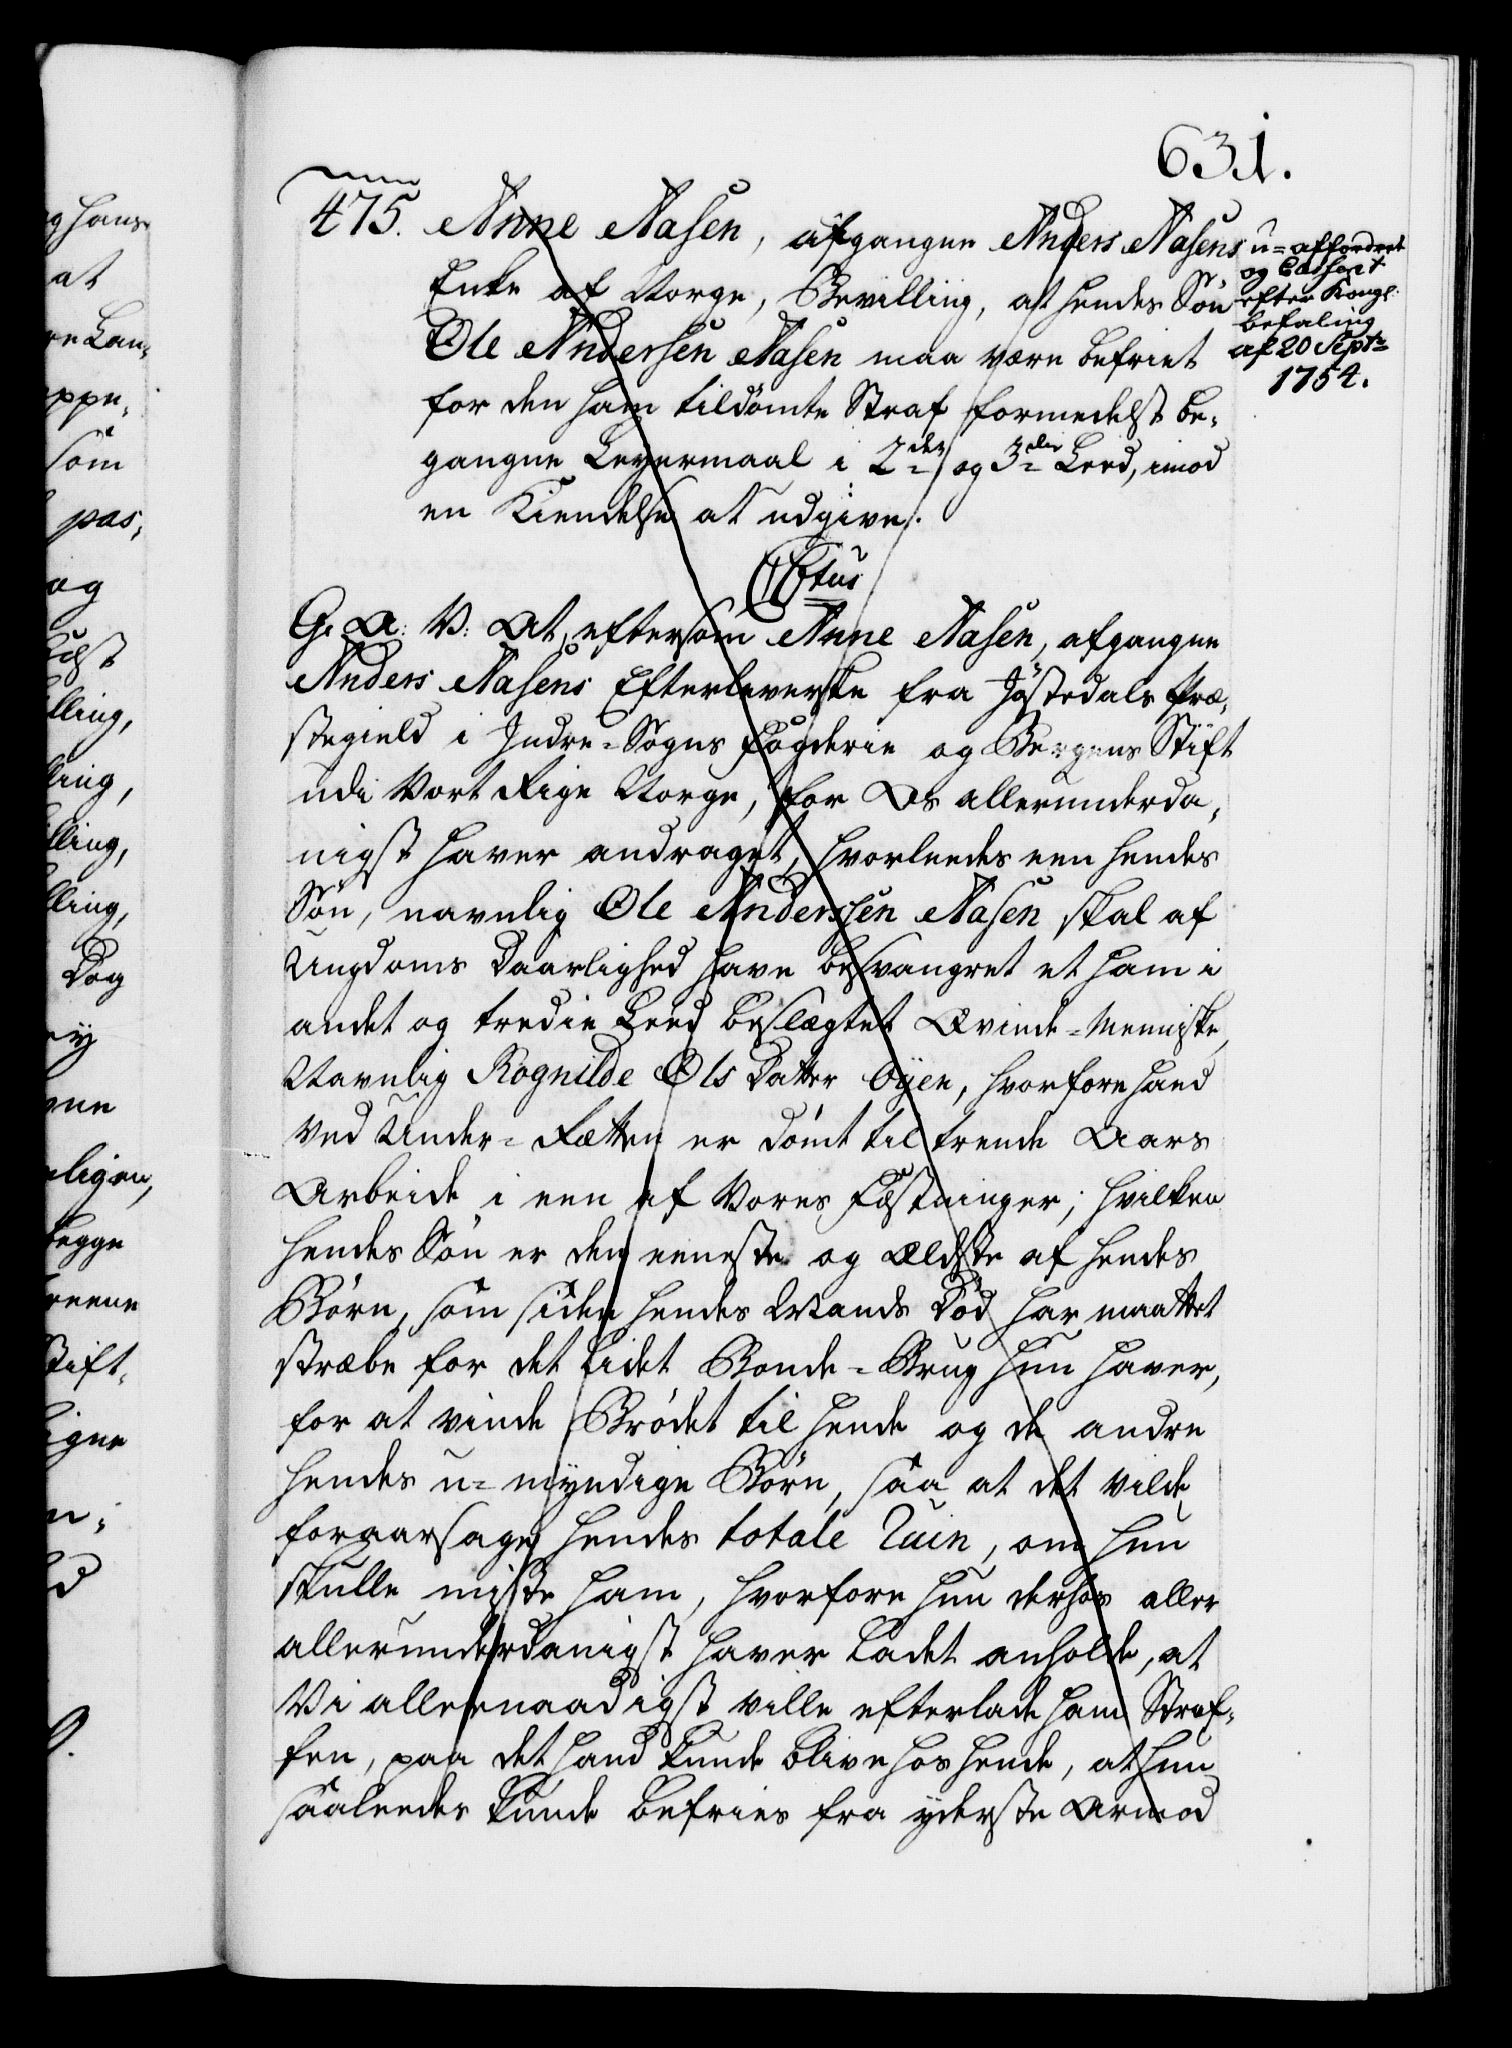 631.
475. Anne Aasen, afgangne Anders Aasens
Enke af Norge, Bevilling, at hendes Søn
Ole Andersen Aasen maa være befriet
for den ham tildømte Straf formedelst be-
gangne Leyermaal i 2den og 3die Leed, imod
en Kiendelse at udgive.
u-affordret
og Casseret
efter Kongl:
befaling
af 20 Septr
1754.
G: A: V: At, eftersom Anne Aasen, afgangne
Anders Aasens Efterleverske fra Jøstedals Præ-
stegield i Indre-Sogns Fogderie og Bergens Stift
udi Vort Rige Norge, for Os allerunderda-
nigst haver andraget, hvorleedes een hendes
Søn, navnlig Ole Anderssen Aasen skal af
Ungdoms Daarlighed have besvangret et ham i
andet og tredie Leed beslægtet Qvinde-Menniske,
Navnlig Rognilde Ols Datter Øyen, hvorfore hand
ved Under-Retten er dømt til trende Aars
Arbeide i een af Vores Fæstninger; hvilken
hendes Søn er den eeneste og Ældste af hendes
Børn, som siden hendes Mands Død har maattet
stræbe for det lidet Bonde-Brug hun haver,
for at vinde Brødet til hende og de andre
hendes u-myndige Børn, saa at det vilde
foraarsage hendes totale Ruin, om hun
skulle miste ham, hvorfore hun derhos aller
allerunderdanigst haver ladet anholde, at
Vi allernaadigst ville efterlade ham Straf-
fen, paa det hand kunde blive hos hende, at hun
saaleedes kunde befries fra yderste Armod